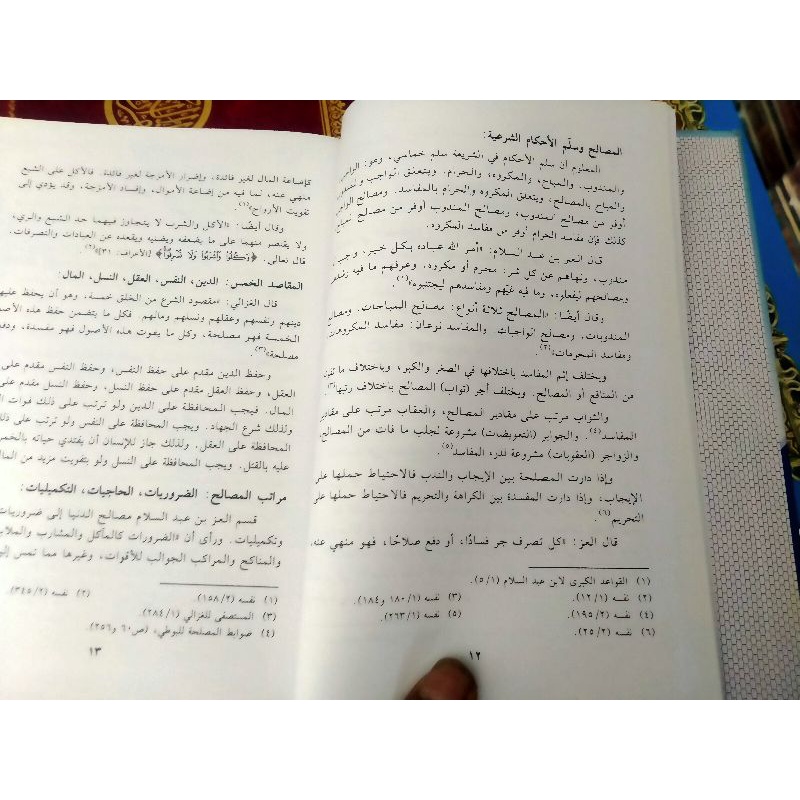 المصالح وسلّم الأحكام الشرعية:
المعلوم أن سلم الأحكام في الشريعة سلم خماسي، وهو: الواجب
والمندوب، والمباح، والمكروه، والحرام. ويتعلق الواجب والمندوب
والمباح بالمصالح، ويتعلق المكروه والحرام بالمفاسد. ومصالح الواجب
أوفر من مصالح المندوب، ومصالح المندوب أوفر من مصالح المباح
كذلك فإن مفاسد الحرام أوفر من مفاسد المكروه.
قال العز بن عبد السلام: «أمر الله عباده بكل خير، واجب
مندوب، ونهاهم عن كل شر: محرم أو مكروه. وعرفهم ما فيه رشدهم
ومصالحهم ليفعلوه، وما فيه غيّهم ومفاسدهم ليجتنبوه»(١).
وقال أيضًا: «المصالح ثلاثة أنواع: مصالح المباحات، ومصالح
المندوبات، ومصالح الواجبات. والمفاسد نوعان: مفاسد المكروهات
ومفاسد المحرمات»(٢).
ويختلف إثم المفاسد باختلافها في الصغر والكبر، وباختلاف ما تفوته
من المنافع أو المصالح. ويختلف أجر (ثواب) المصالح باختلاف رتبها(٣).
والثواب مرتب على مقادير المصالح، والعقاب مرتب على مقادير
المفاسد(٤). والجوابر (التعويضات) مشروعة لجلب ما فات من المصالح،
والزواجر (العقوبات) مشروعة لدرء المفاسد(٥).
وإذا دارت المصلحة بين الإيجاب والندب فالاحتياط حملها على
الإيجاب، وإذا دارت المفسدة بين الكراهة والتحريم فالاحتياط حملها على
التحريم(٦).
قال العز: «كل تصرف جر فسادًا، أو دفع صلاحًا، فهو منهي عنه،
(١) القواعد الكبرى لابن عبد السلام (٥/١).
(٢) نفسه (١٢/١).
(٣) نفسه (١٨٠/١ و١٨٤).
(٤) نفسه (١٩٥/٢).
(٥) نفسه (٢٦٣/١).
(٦) نفسه (٢٥/٢).
١٢
كإضاعة المال لغير فائدة، وإضرار الأمزجة لغير فائدة. فالأكل على الشبع
منهي عنه، لما فيه من إضاعة الأموال، وإفساد الأمزجة، وقد يؤدي إلى
تفويت الأرواح»(١).
وقال أيضًا: «الأكل والشرب لا يتجاوز فيهما حد الشبع والري،
ولا يقتصر منهما على ما يضعفه ويضنيه ويقعده عن العبادات والتصرفات.
قال تعالى: ﴿وَكُلُوا وَاشْرَبُوا وَلَا تُسْرِفُوا﴾ [الأعراف: ٣١]»(٢).
المقاصد الخمس: الدين، النفس، العقل، النسل، المال:
قال الغزالي: «مقصود الشرع من الخلق خمسة، وهو أن يحفظ عليهم
دينهم ونفسهم وعقلهم ونسلهم ومالهم. فكل ما يتضمن حفظ هذه الأصول
الخمسة فهو مصلحة، وكل ما يفوت هذه الأصول فهو مفسدة، ودفعها
مصلحة»(٣).
وحفظ الدين مقدم على حفظ النفس، وحفظ النفس مقدم على
العقل، وحفظ العقل مقدم على حفظ النسل، وحفظ النسل مقدم على
المال. فيجب المحافظة على الدين ولو ترتب على ذلك فوات
ولذلك شرع الجهاد. ويجب المحافظة على النفس ولو ترتب على
المحافظة على العقل. ولذلك جاز للإنسان أن يفتدي حياته بالخمر
عليه بالقتل. ويجب المحافظة على النسل ولو بتفويت مزيد من المال
مراتب المصالح: الضروريات، الحاجيات، التكميليات:
قسم العز بن عبد السلام مصالح الدنيا إلى ضروريات
وتكميليات. ورأى أن «الضرورات كالمآكل والمشارب والملابس
والمناكح والمراكب الجوالب للأقوات، وغيرها مما تمس إليه
(١) نفسه (١٥٨/٢).
(٢) نفسه (٣٤٥/٢).
(٣) المستصفى للغزالي (٢٨٤/١).
(٤) ضوابط المصلحة للبوطي، (ص٦٠ و٢٥٦).
١٣